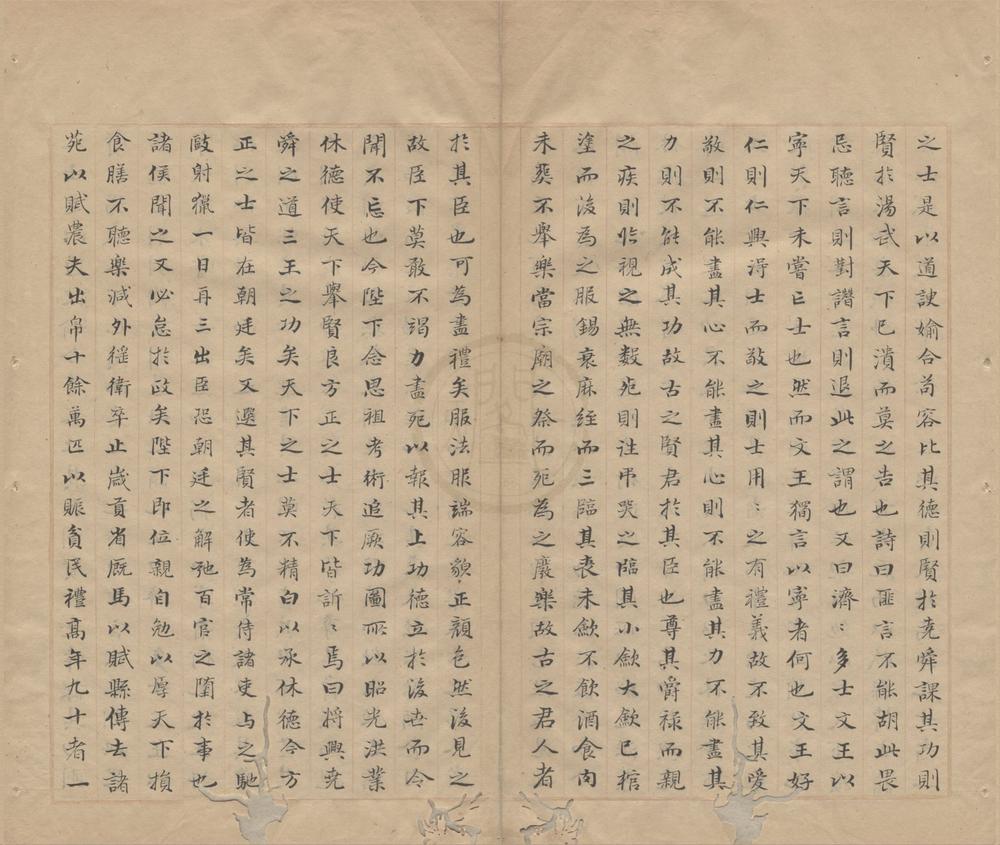 之士是以道諛媮合苟容比其德則賢扵尭舜課其功則
賢扵湯武天下已潰而莫之告也詩曰匪言不能胡此畏
忌聽言則對譖言則退此之謂也又曰濟〻多士文王以
寧天下未嘗亡士也然而文王獨言以寧者何也文王好
仁則仁興淂士而敬之則士用〻之有禮義故不致其愛
敬則不能盡其心不能盡其心則不能盡其力不能盡其
力則不能成其功故古之賢君扵其臣也尊其爵禄而親
之疾則臨視之無數死則往弔哭之臨其小斂大斂已棺
塗而後為之服錫衰麻絰而三臨其喪未斂不飲酒食肉
未葬不舉樂當宗廟之祭而死為之廢樂故古之君人者
扵其臣也可為盡禮矣服法服端容貌正顔色然後見之
故臣下莫敢不竭力盡死以報其上功德立扵後世而令
聞不忘也今陛下念思祖考術追厥功圖所以昭光洪業
休德使天下舉賢良方正之士天下皆訢〻焉曰将興尭
舜之道三王之功矣天下之士莫不精白以承休德今方
正之士皆在朝廷矣又選其賢者使為常侍諸吏与之馳
敺射獵一日再三出臣恐朝廷之解弛百官之墮扵事也
諸侯聞之又必怠扵政矣陛下即位親自勉以厚天下損
食膳不聽樂減外徭衛卒止歳貢省厩馬以賦縣傳去諸
苑以賦農夫出帛十餘萬匹以賑貧民禮髙年九十者一